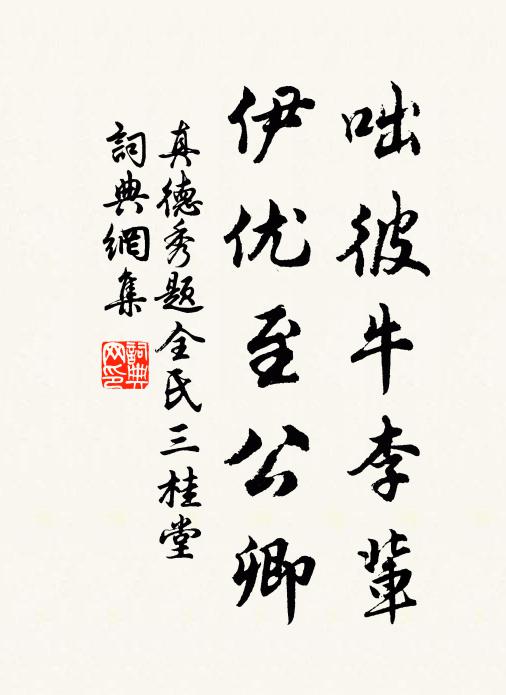 咄彼牛李輩
伊优至公卿
真德秀題全氏三桂堂
詞典網集
詞典
网印